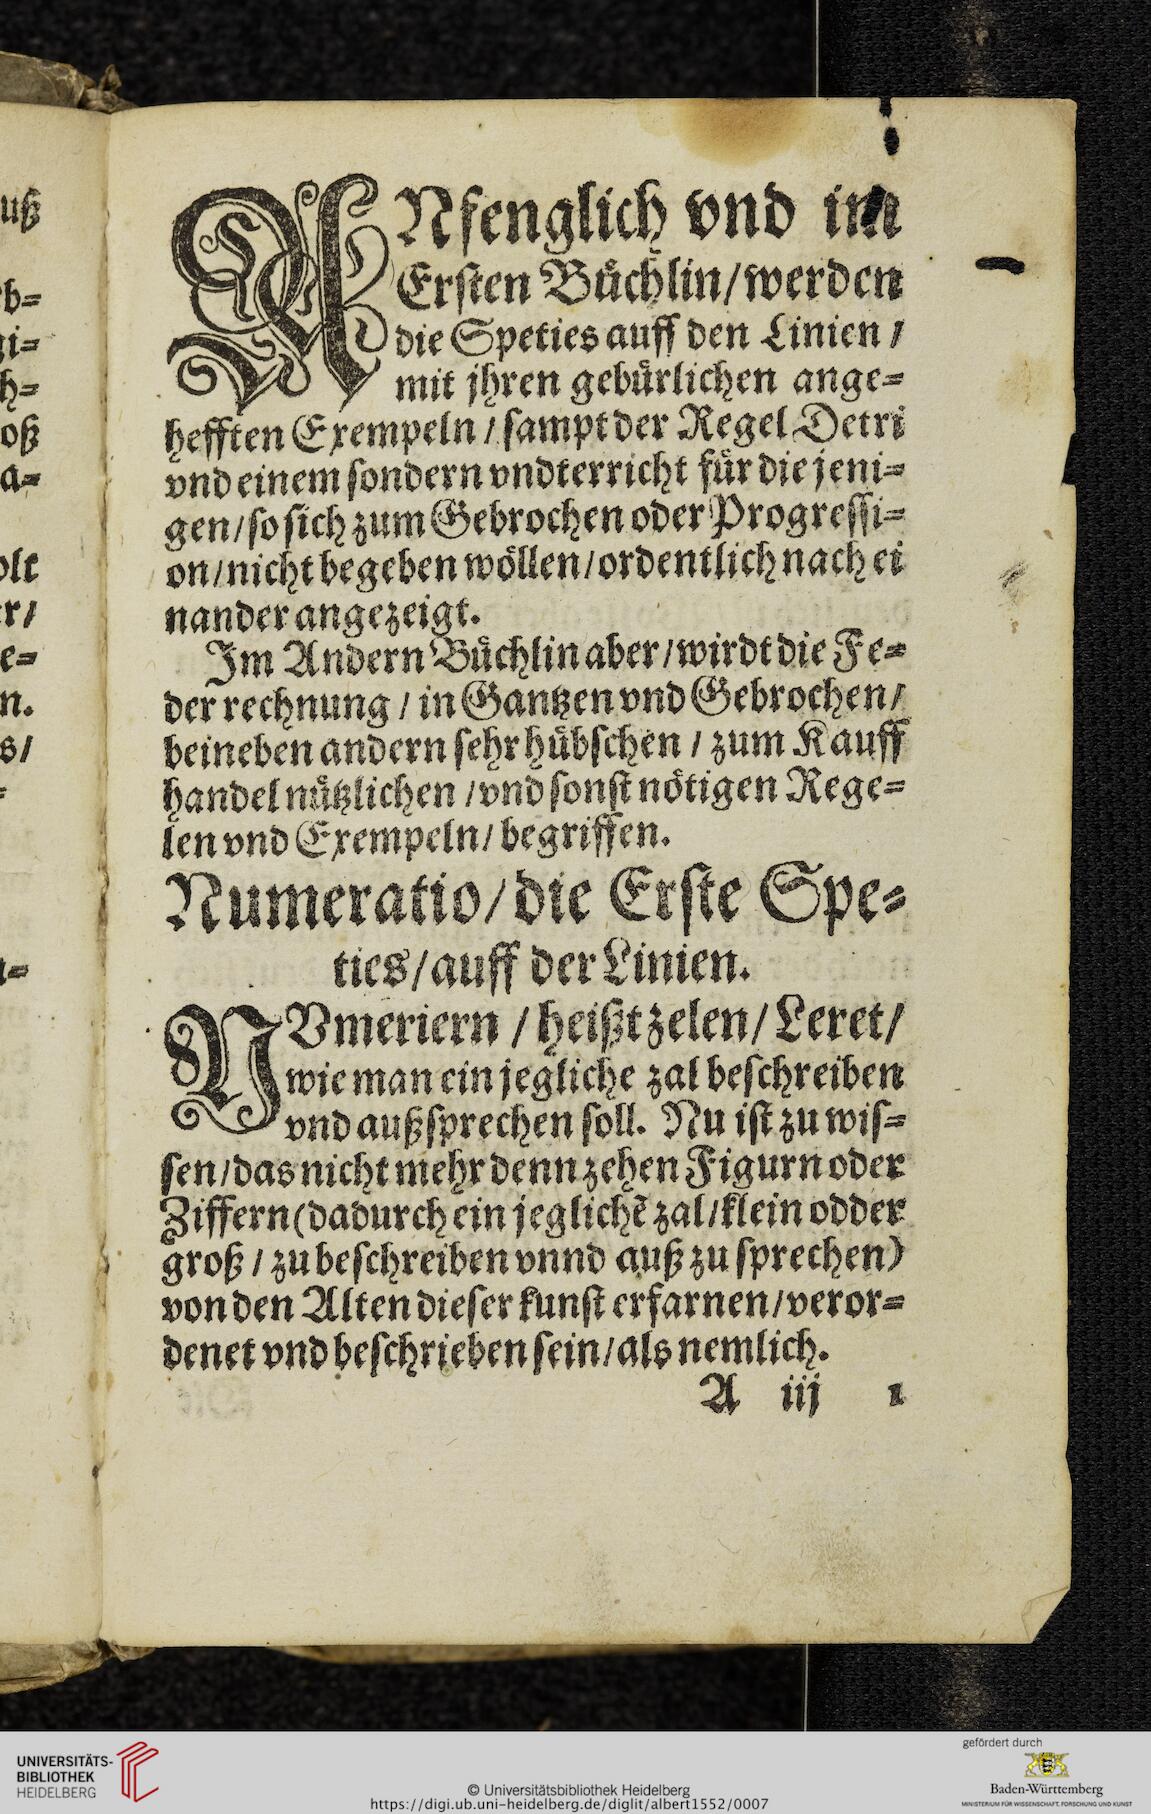 ANfenglich vnd im
Ersten Büchlin/werden
die Speties auff den Linien /
mit jhren gebürlichen ange=
hefften Exempeln / sampt der Regel Detri
vnd einem sondern vndterricht für die jeni=
gen/so sich zum Gebrochen oder Progressi=
on/nicht begeben wöllen/ordentlich nach ei
nander angezeigt.
Im Andern Büchlin aber/wirdt die Fe=
der rechnung / in Gantzen vnd Gebrochen/
beineben andern sehr hübschen / zum Kauff
handel nützlichen /vnd sonst nötigen Rege=
len vnd Exempeln/ begriffen.
Numeratio/die Erste Spe=
ties/auff der Linien.
NVmeriern / heißt zelen/Leret/
wie man ein jegliche zal beschreiben
vnd außsprechen soll. Nu ist zu wis=
sen/das nicht mehr denn zehen Figurn oder
Ziffern(dadurch ein jeglichē zal/klein odder
groß / zu beschreiben vnnd auß zu sprechen)
von den Alten dieser kunst erfarnen/veror=
denet vnd beschrieben sein/als nemlich.
A iij 1
UNIVERSITÄTS-
BIBLIOTHEK
HEIDELBERG
© Universitätsbibliothek Heidelberg
https://digi.ub.uni-heidelberg.de/diglit/albert1552/0007
gefördert durch
Baden-Württemberg
MINISTERIUM FÜR WISSENSCHAFT, FORSCHUNG UND KUNST